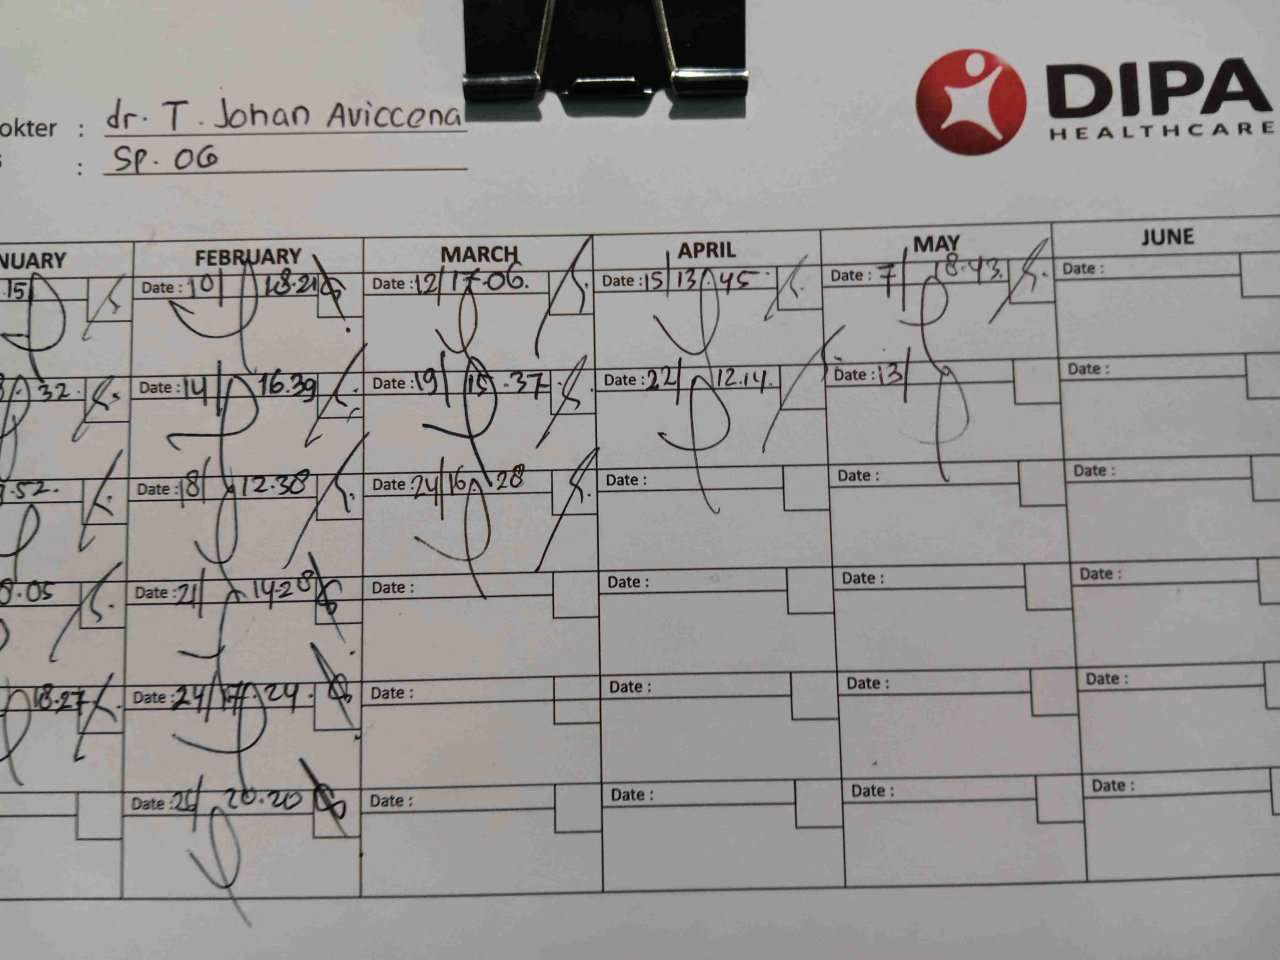 DIPA
HEALTHCARE
okter : dr. T. Johan Aviccena
: Sp. OG
NUARY FEBRUARY MARCH APRIL MAY JUNE
15 Date : 10/ 18.21 Date : 12/ 17.06. Date : 15/ 13.45 Date : 7/ 18.43. Date :
32. Date : 14/ 16.39 Date : 19/ 15.37 Date : 22/ 12.14. Date : 13/ Date :
.52. Date : 18/ 12.38 Date : 24/ 16.28 Date : Date : Date :
.05 Date : 21/ 14.28 Date : Date : Date : Date :
18.27 Date : 24/ 17.24. Date : Date : Date : Date :
Date : 26/ 20.20 Date : Date : Date : Date :